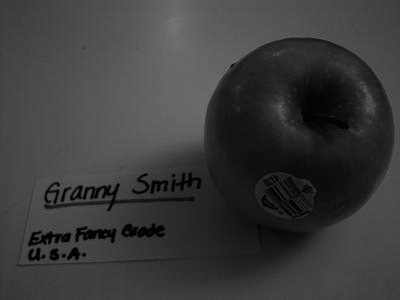 Granny Smith
Extra Fancy Grade
U.S.A.